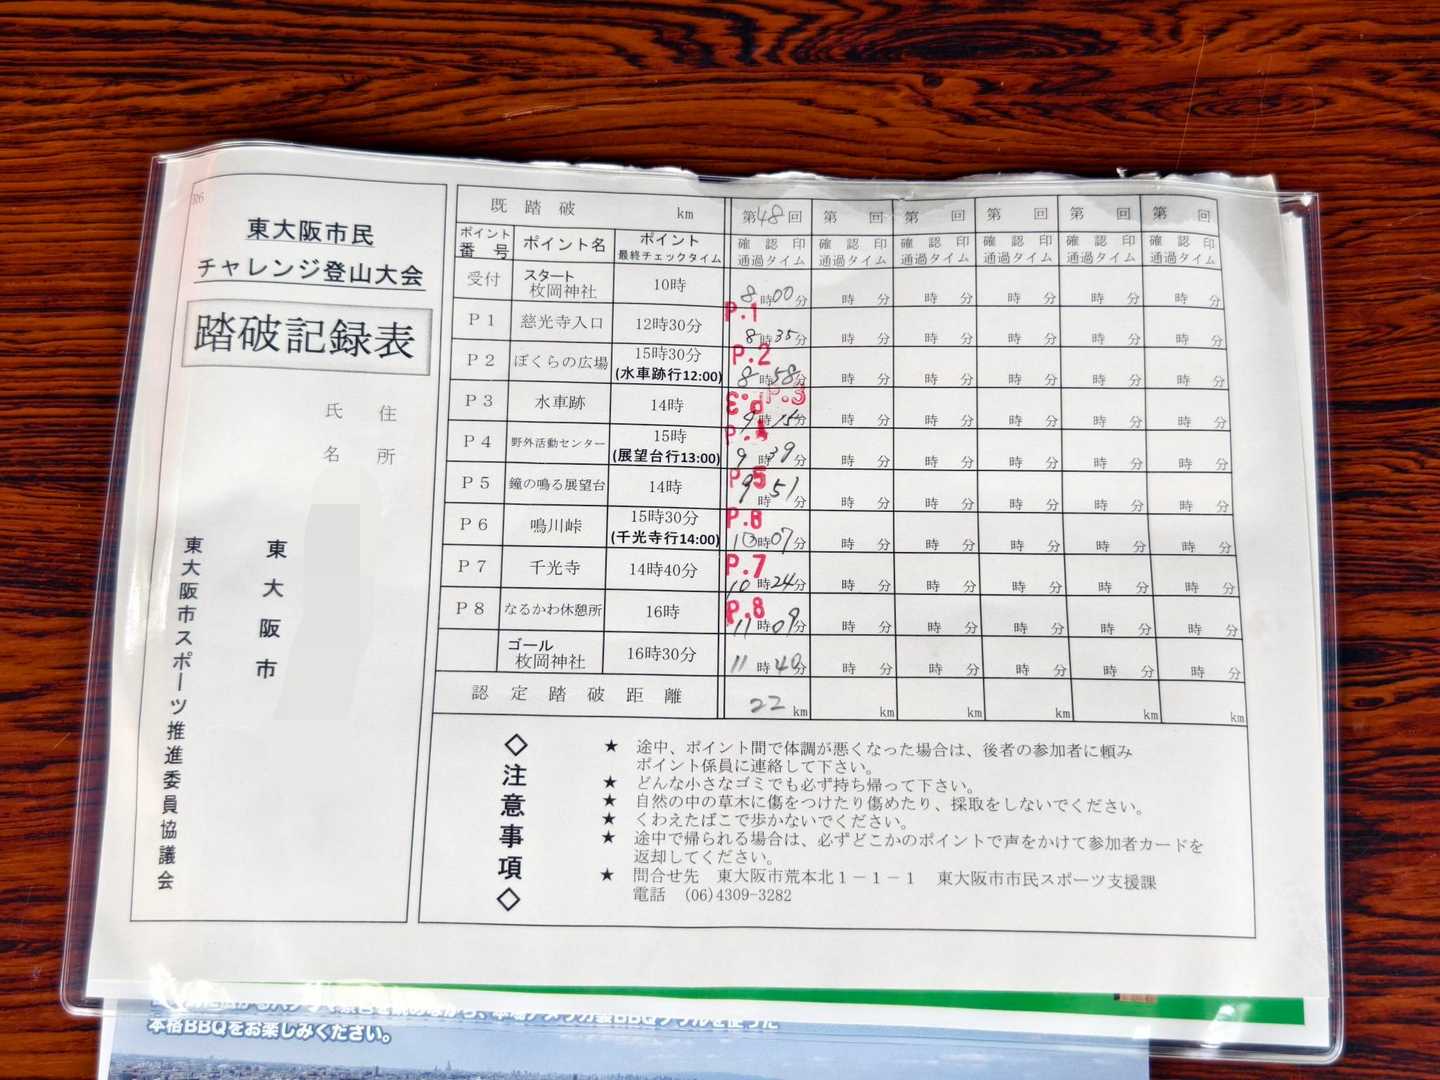 R6
東大阪市民
チャレンジ登山大会
踏破記録表
氏名
住所
東大阪市
東大阪市スポーツ推進委員協議会
既踏破 km 第48回 第 回 第 回 第 回 第 回 第 回
ポイント番号 ポイント名 ポイント最終チェックタイム 確認印通過タイム 確認印通過タイム 確認印通過タイム 確認印通過タイム 確認印通過タイム 確認印通過タイム
受付 スタート枚岡神社 10時 8時00分 時 分 時 分 時 分 時 分 時 分
P1 慈光寺入口 12時30分 P.1 8時35分 時 分 時 分 時 分 時 分 時 分
P2 ぼくらの広場 15時30分(水車跡行12:00) P.2 8時58分 時 分 時 分 時 分 時 分 時 分
P3 水車跡 14時 P.3 P.3 9時15分 時 分 時 分 時 分 時 分 時 分
P4 野外活動センター 15時(展望台行13:00) P.4 9時39分 時 分 時 分 時 分 時 分 時 分
P5 鐘の鳴る展望台 14時 P.5 9時51分 時 分 時 分 時 分 時 分 時 分
P6 鳴川峠 15時30分(千光寺行14:00) P.6 10時07分 時 分 時 分 時 分 時 分 時 分
P7 千光寺 14時40分 P.7 10時24分 時 分 時 分 時 分 時 分 時 分
P8 なるかわ休憩所 16時 P.8 11時09分 時 分 時 分 時 分 時 分 時 分
ゴール枚岡神社 16時30分 11時40分 時 分 時 分 時 分 時 分 時 分
認定踏破距離 22km km km km km km
◇注意事項◇
★ 途中、ポイント間で体調が悪くなった場合は、後者の参加者に頼み
ポイント係員に連絡して下さい。
★ どんな小さなゴミでも必ず持ち帰って下さい。
★ 自然の中の草木に傷をつけたり傷めたり、採取をしないでください。
★ くわえたばこで歩かないでください。
★ 途中で帰られる場合は、必ずどこかのポイントで声をかけて参加者カードを
返却してください。
★ 問合せ先 東大阪市荒本北1-1-1 東大阪市市民スポーツ支援課
電話 (06)4309-3282
本格BBQをお楽しみください。